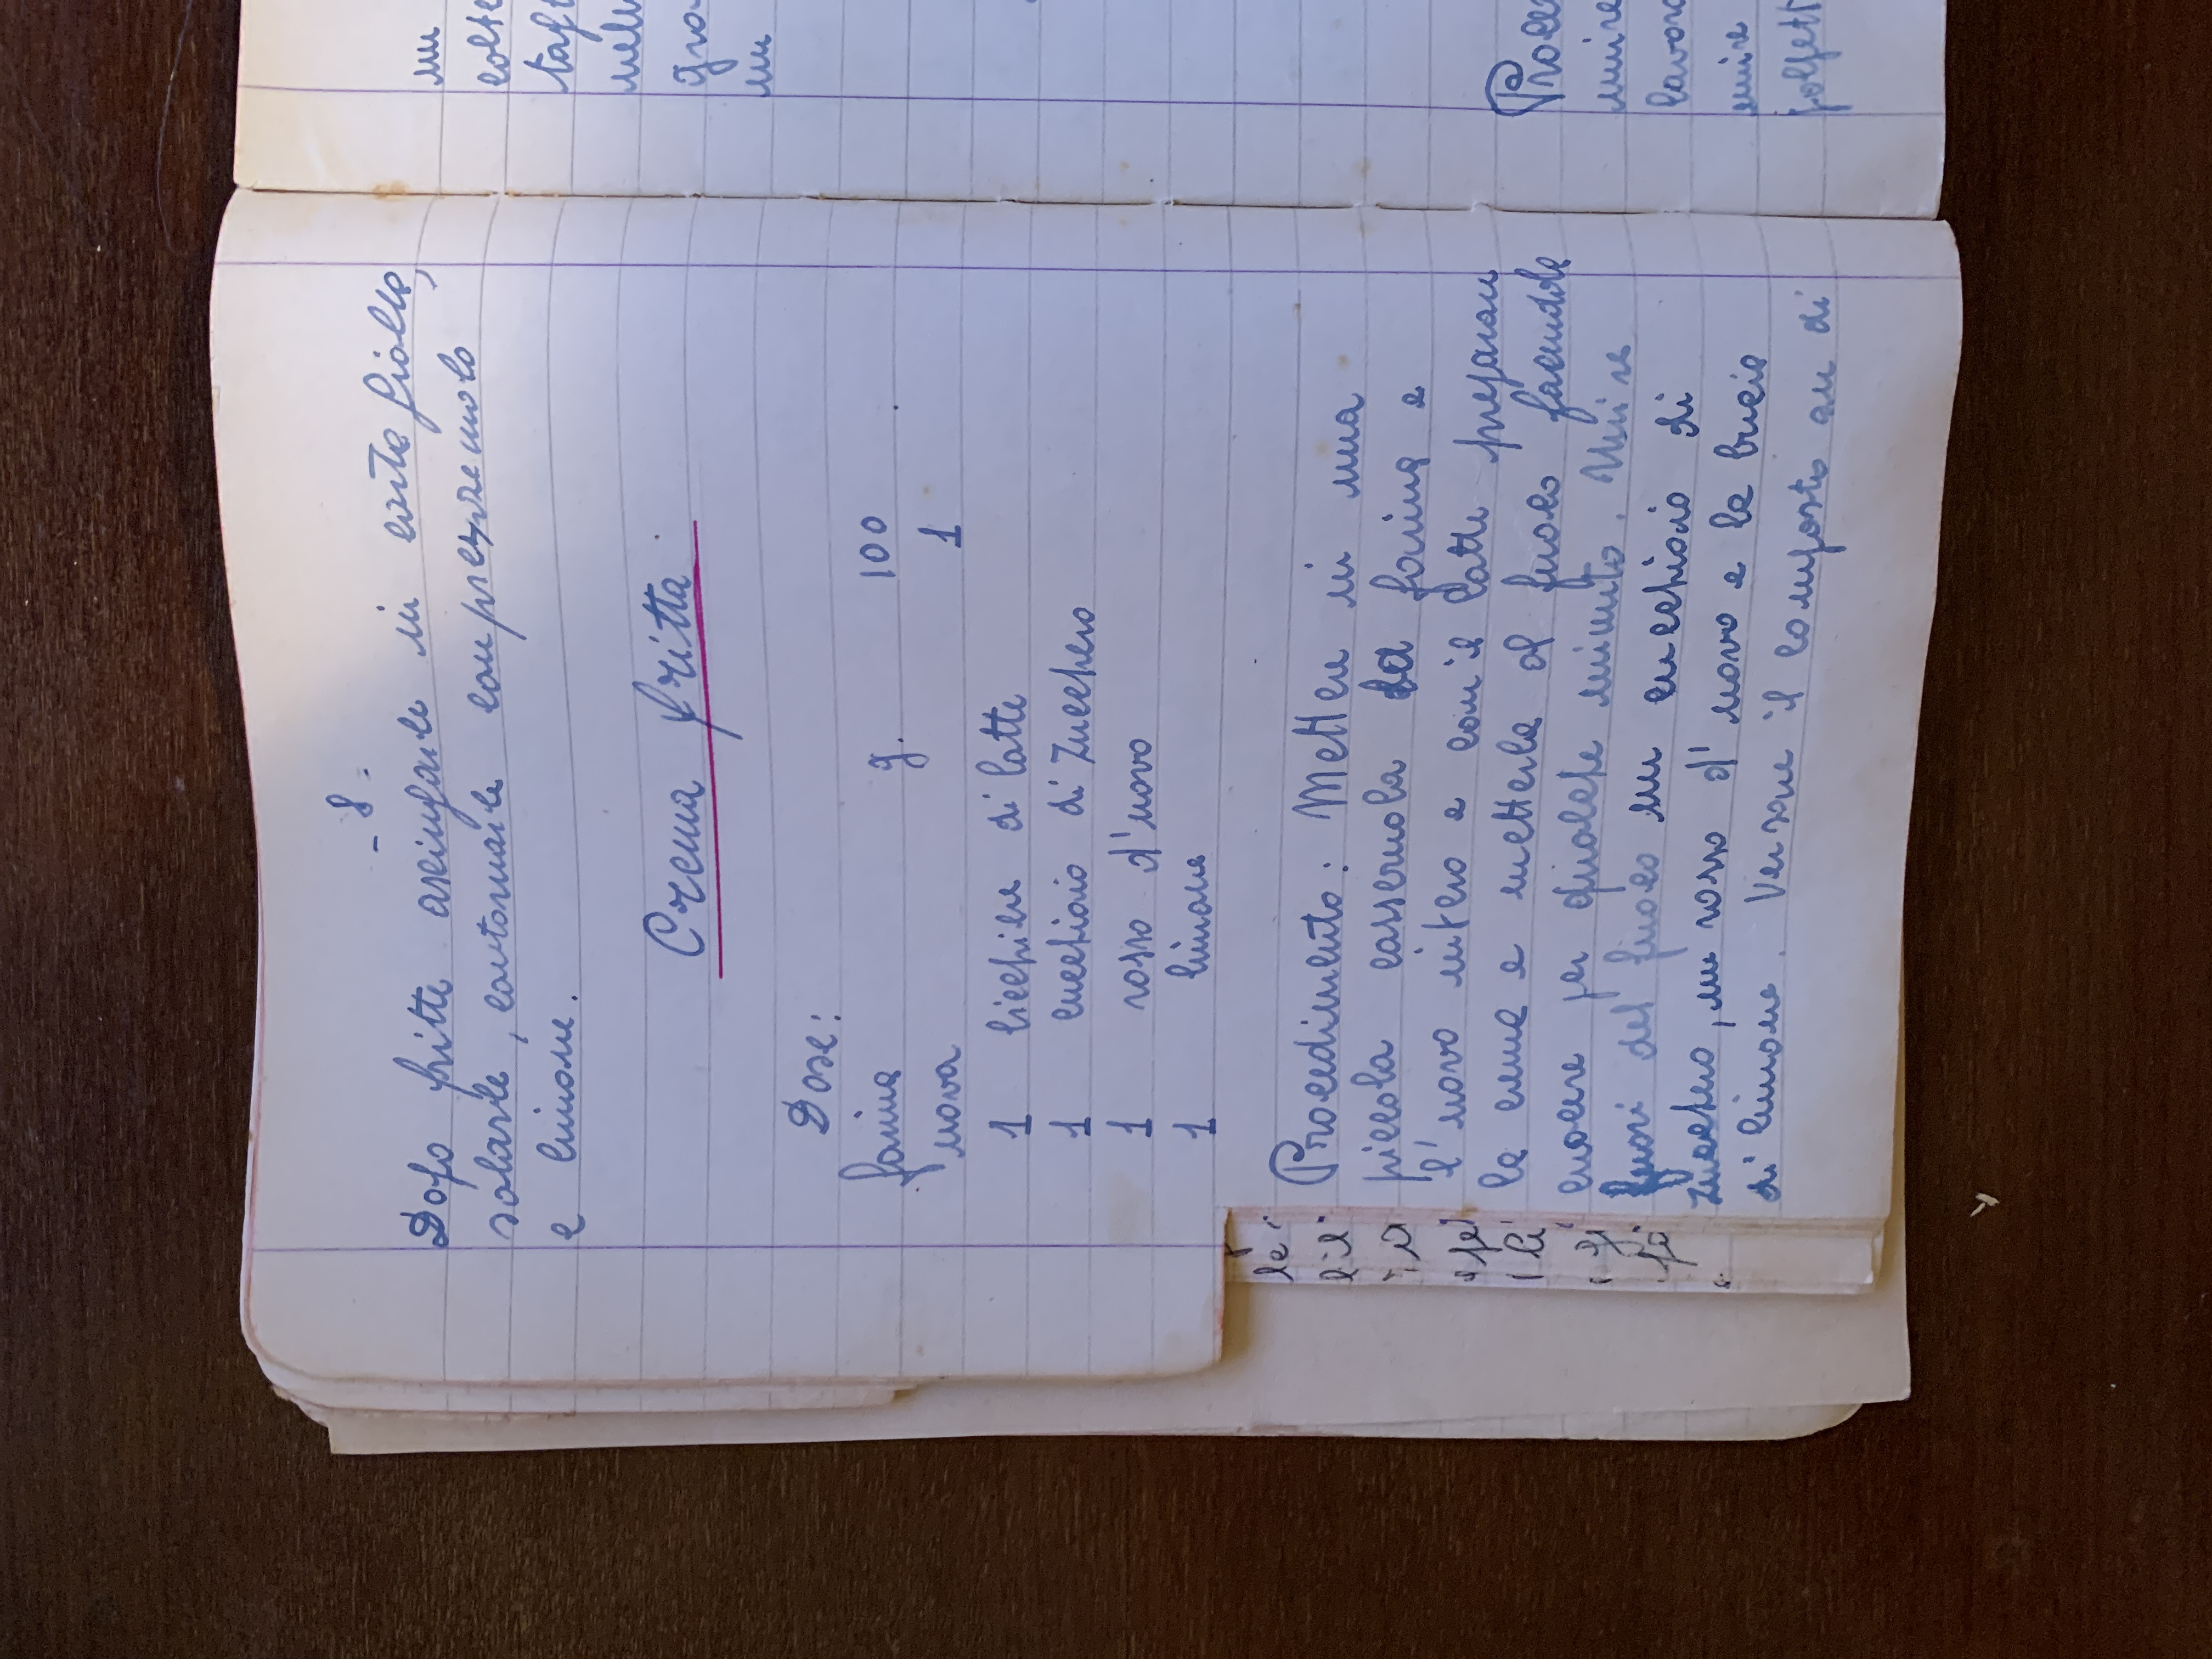 - 8 -
Dopo fritte asciugarle in carta gialla,
salarle, contornarle con prezzemolo
e limone.
Crema fritta
Dose:
farina g. 100
uova 1
1 bicchiere di latte
1 cucchiaio di zucchero
1 rosso d'uovo
1 limone
Procedimento: Mettere in una
piccola casseruola la farina e
l'uovo intero e con il latte preparare
la crema e metterla al fuoco facendola
cuocere per qualche minuto. Unire
fuori del fuoco un cucchiaio di
zucchero, un rosso d'uovo e la bucia
di limone. Versare il composto su di
un
colte
tagl
nell
gra
un
Proce
unire
lavora
unire
polpett